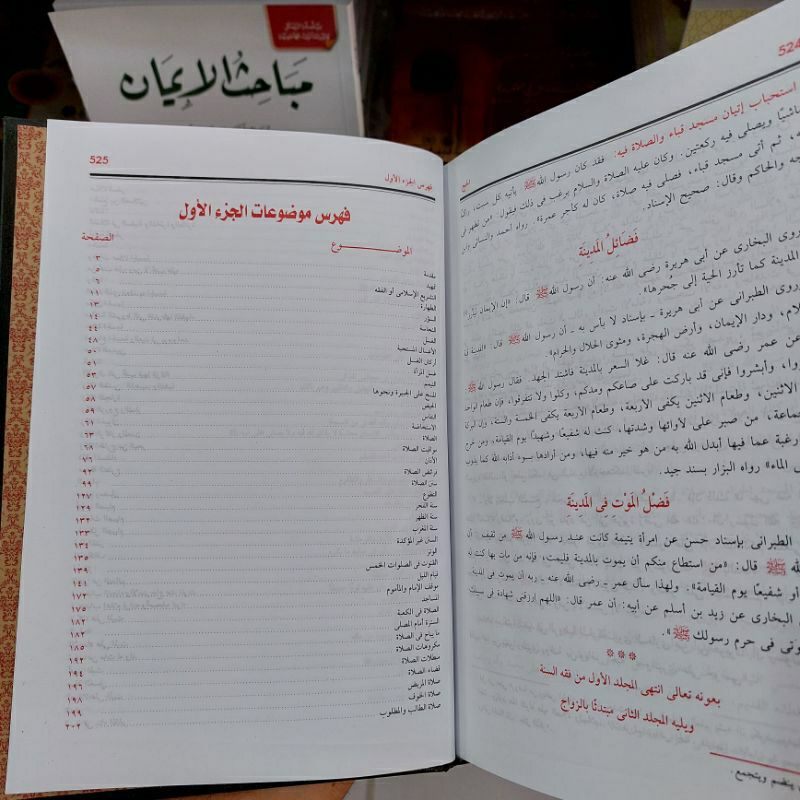 مباحث الإيمان
524
الحج
استحباب إتيان مسجد قباء والصلاة فيه: فقد كان رسول الله ﷺ يأتيه كل سبت
ويصلى فيه ركعتين. وكان عليه الصلاة والسلام يرغب فى ذلك فيقول
ثم أتى مسجد قباء، فصلى فيه صلاة، كان له كأجر عمرة». رواه أحمد والنسائى وابن
والحاكم وقال: صحيح الإسناد.
فَضَائِلُ المَدِينَةِ
روى البخارى عن أبى هريرة رضى الله عنه: أن رسول الله ﷺ قال: «إن الإيمان ليأرز
المدينة كما تأرز الحية إلى جُحرها».
روى الطبرانى عن أبى هريرة ـ بإسناد لا بأس به ـ أن رسول الله ﷺ قال: «المدينة
ودار الإيمان، وأرض الهجرة، ومثوى الحلال والحرام».
عن عمر رضى الله عنه قال: غلا السعر بالمدينة فاشتد الجهد. فقال رسول الله ﷺ
وأبشروا فإنى قد باركت على صاعكم ومدكم، وكلوا ولا تتفرقوا، فإن طعام الواحد
الاثنين، وطعام الاثنين يكفى الأربعة، وطعام الأربعة يكفى الخمسة والستة، وإن البركة
من صبر على لأوائها وشدتها، كنت له شفيعًا وشهيدًا يوم القيامة، ومن خرج
رغبة عما فيها أبدل الله به من هو خير منه فيها، ومن أرادها بسوء أذابه الله كما يذوب
الماء» رواه البزار بسند جيد.
فَضْلُ المَوْتِ فِى المَدِينَةِ
الطبرانى بإسناد حسن عن امرأة يتيمة كانت عند رسول الله ﷺ من ثقيف: أن
ﷺ قال: «من استطاع منكم أن يموت بالمدينة فليمت، فإنه من مات بها كنت له
أو شفيعًا يوم القيامة». ولهذا سأل عمر ـ رضى الله عنه ـ ربه أن يموت فى المدينة.
البخارى عن زيد بن أسلم عن أبيه: أن عمر قال: «اللهم ارزقنى شهادة فى سبيلك
موتى فى حرم رسولك ﷺ».
***
بعونه تعالى انتهى المجلد الأول من فقه السنة
ويليه المجلد الثانى مبتدئًا بالزواج
ينضم ويتجمع.
فهرس الجزء الأول 525
فهرس موضوعات الجزء الأول
الموضـــــوع الصفحة
مقدمة ٣
تمهيد ٥
التشريع الإسلامى أو الفقه ٦
الطهارة ١١
السؤر ١٣
النجاسة ١٤
الغسل ٤٤
الأغسال المستحبة ٤٨
أركان الغسل ٥٠
غسل المرأة ٥١
التيمم ٥٣
المسح على الجبيرة ونحوها ٥٧
الحيض ٥٨
النفاس ٥٩
الاستحاضة ٦١
الصلاة ٦٣
مواقيت الصلاة ٦٨
الأذان ٧٦
فرائض الصلاة ٩٢
سنن الصلاة ٩٩
التطوع ١٢٧
سنة الفجر ١٢٩
سنة الظهر ١٣٢
سنة المغرب ١٣٣
السنن غير المؤكدة ١٣٤
الوتر ١٣٥
القنوت فى الصلوات الخمس ١٣٩
قيام الليل ١٤١
موقف الإمام والمأموم ١٧٢
المساجد ١٧٥
الصلاة فى الكعبة ١٨٢
السترة أمام المصلى ١٨٢
ما يباح فى الصلاة ١٨٥
مكروهات الصلاة ١٩٢
مبطلات الصلاة ١٩٤
قضاء الصلاة ١٩٦
صلاة المريض ١٩٨
صلاة الخوف ١٩٩
صلاة الطالب والمطلوب ٢٠٢